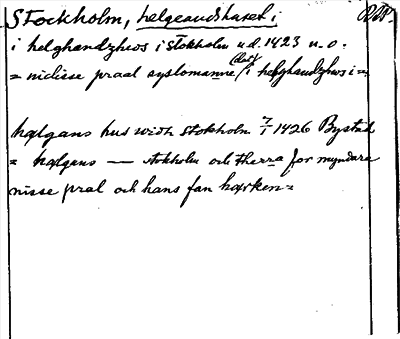 Stockholm, helgeandshuset i
i helghandzhws i stokholm u.d. 1423 n. o.
= niclisse praal syslomanne (dat) i helghandzhws i =
hælgans hus widh stokholm 7/1 1426 Bystad
= hælgans — stokholm och therra for myndara
nisse pral och hans fan hærken =